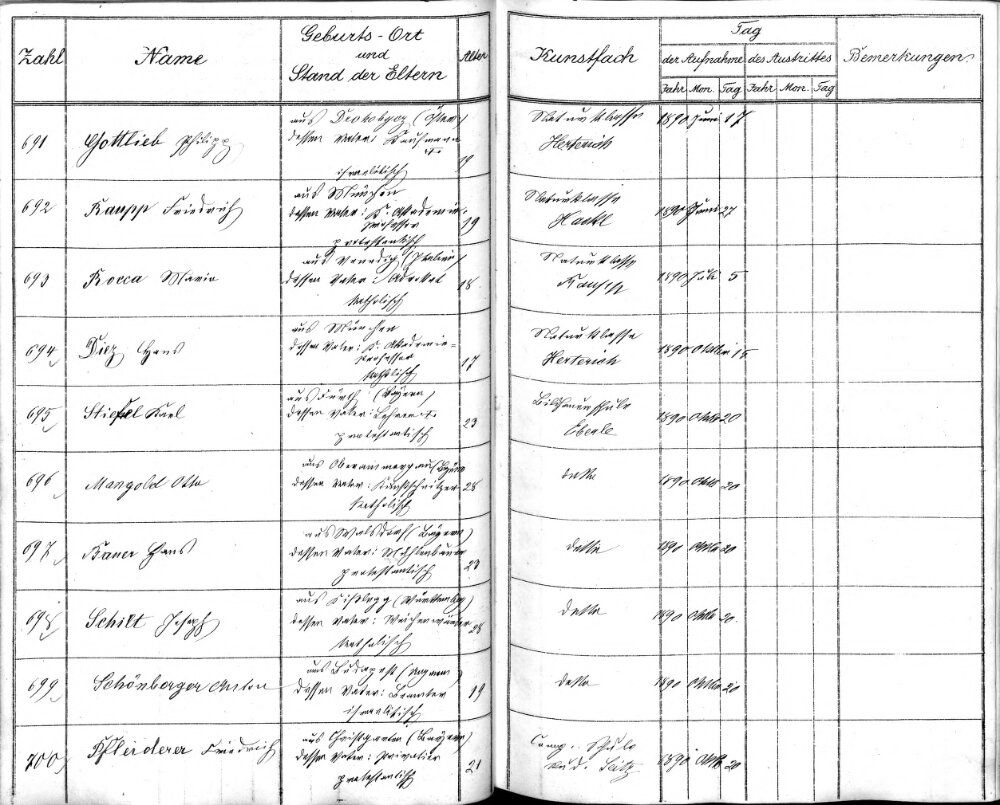 Zahl Name Geburts-Ort und Stand der Eltern Alter Kunstfach Tag der Aufnahme des Austrittes Bemerkungen
Jahr Mon. Tag Jahr Mon. Tag
691 Gottlieb Philipp
aus Drohobycz
dessen Vater: Kaufmann
israelitisch 19
Naturklasse
Herterich
1890 Juni 17
692 Kaupp Friedrich
aus München
dessen Vater: K. Akademie-
professor
protestantisch 19
Naturklasse
Hackl
1890 Juni 27
693 Rocca Maria
aus Venedig (Italien)
dessen Vater: Advokat
katholisch 18
Naturklasse
1890 Juli 5
694 Diez Hans
aus München
dessen Vater: K. Akademie-
professor
katholisch 17
Naturklasse
Herterich
1890 Oktober 15
695 Stiefel Karl
aus Fürth (Bayern)
dessen Vater:
protestantisch 23
Bildhauerschule
Eberle
1890 Oktb 20
696 Mangold Otto
aus Oberammergau
dessen Vater:
katholisch 28
detto
1890 Oktb 20
697 Bauer Hans
aus Walsdorf (Bayern)
dessen Vater: Mühlenbauer
protestantisch 23
detto
1890 Oktb 20
698 Schilt Joseph
aus Kißlegg (Württemberg)
dessen Vater:
katholisch 28
detto
1890 Oktb 20
699 Schönberger Anton
aus Budapest (Ungarn)
dessen Vater: Beamter
israelitisch 19
detto
1890 Oktb 20
700 Pfleiderer Friedrich
aus Christgarten (Bayern)
dessen Vater: Privatier
protestantisch 21
Comp. Schule
v. Rud. Seitz
1890 Oktb 20